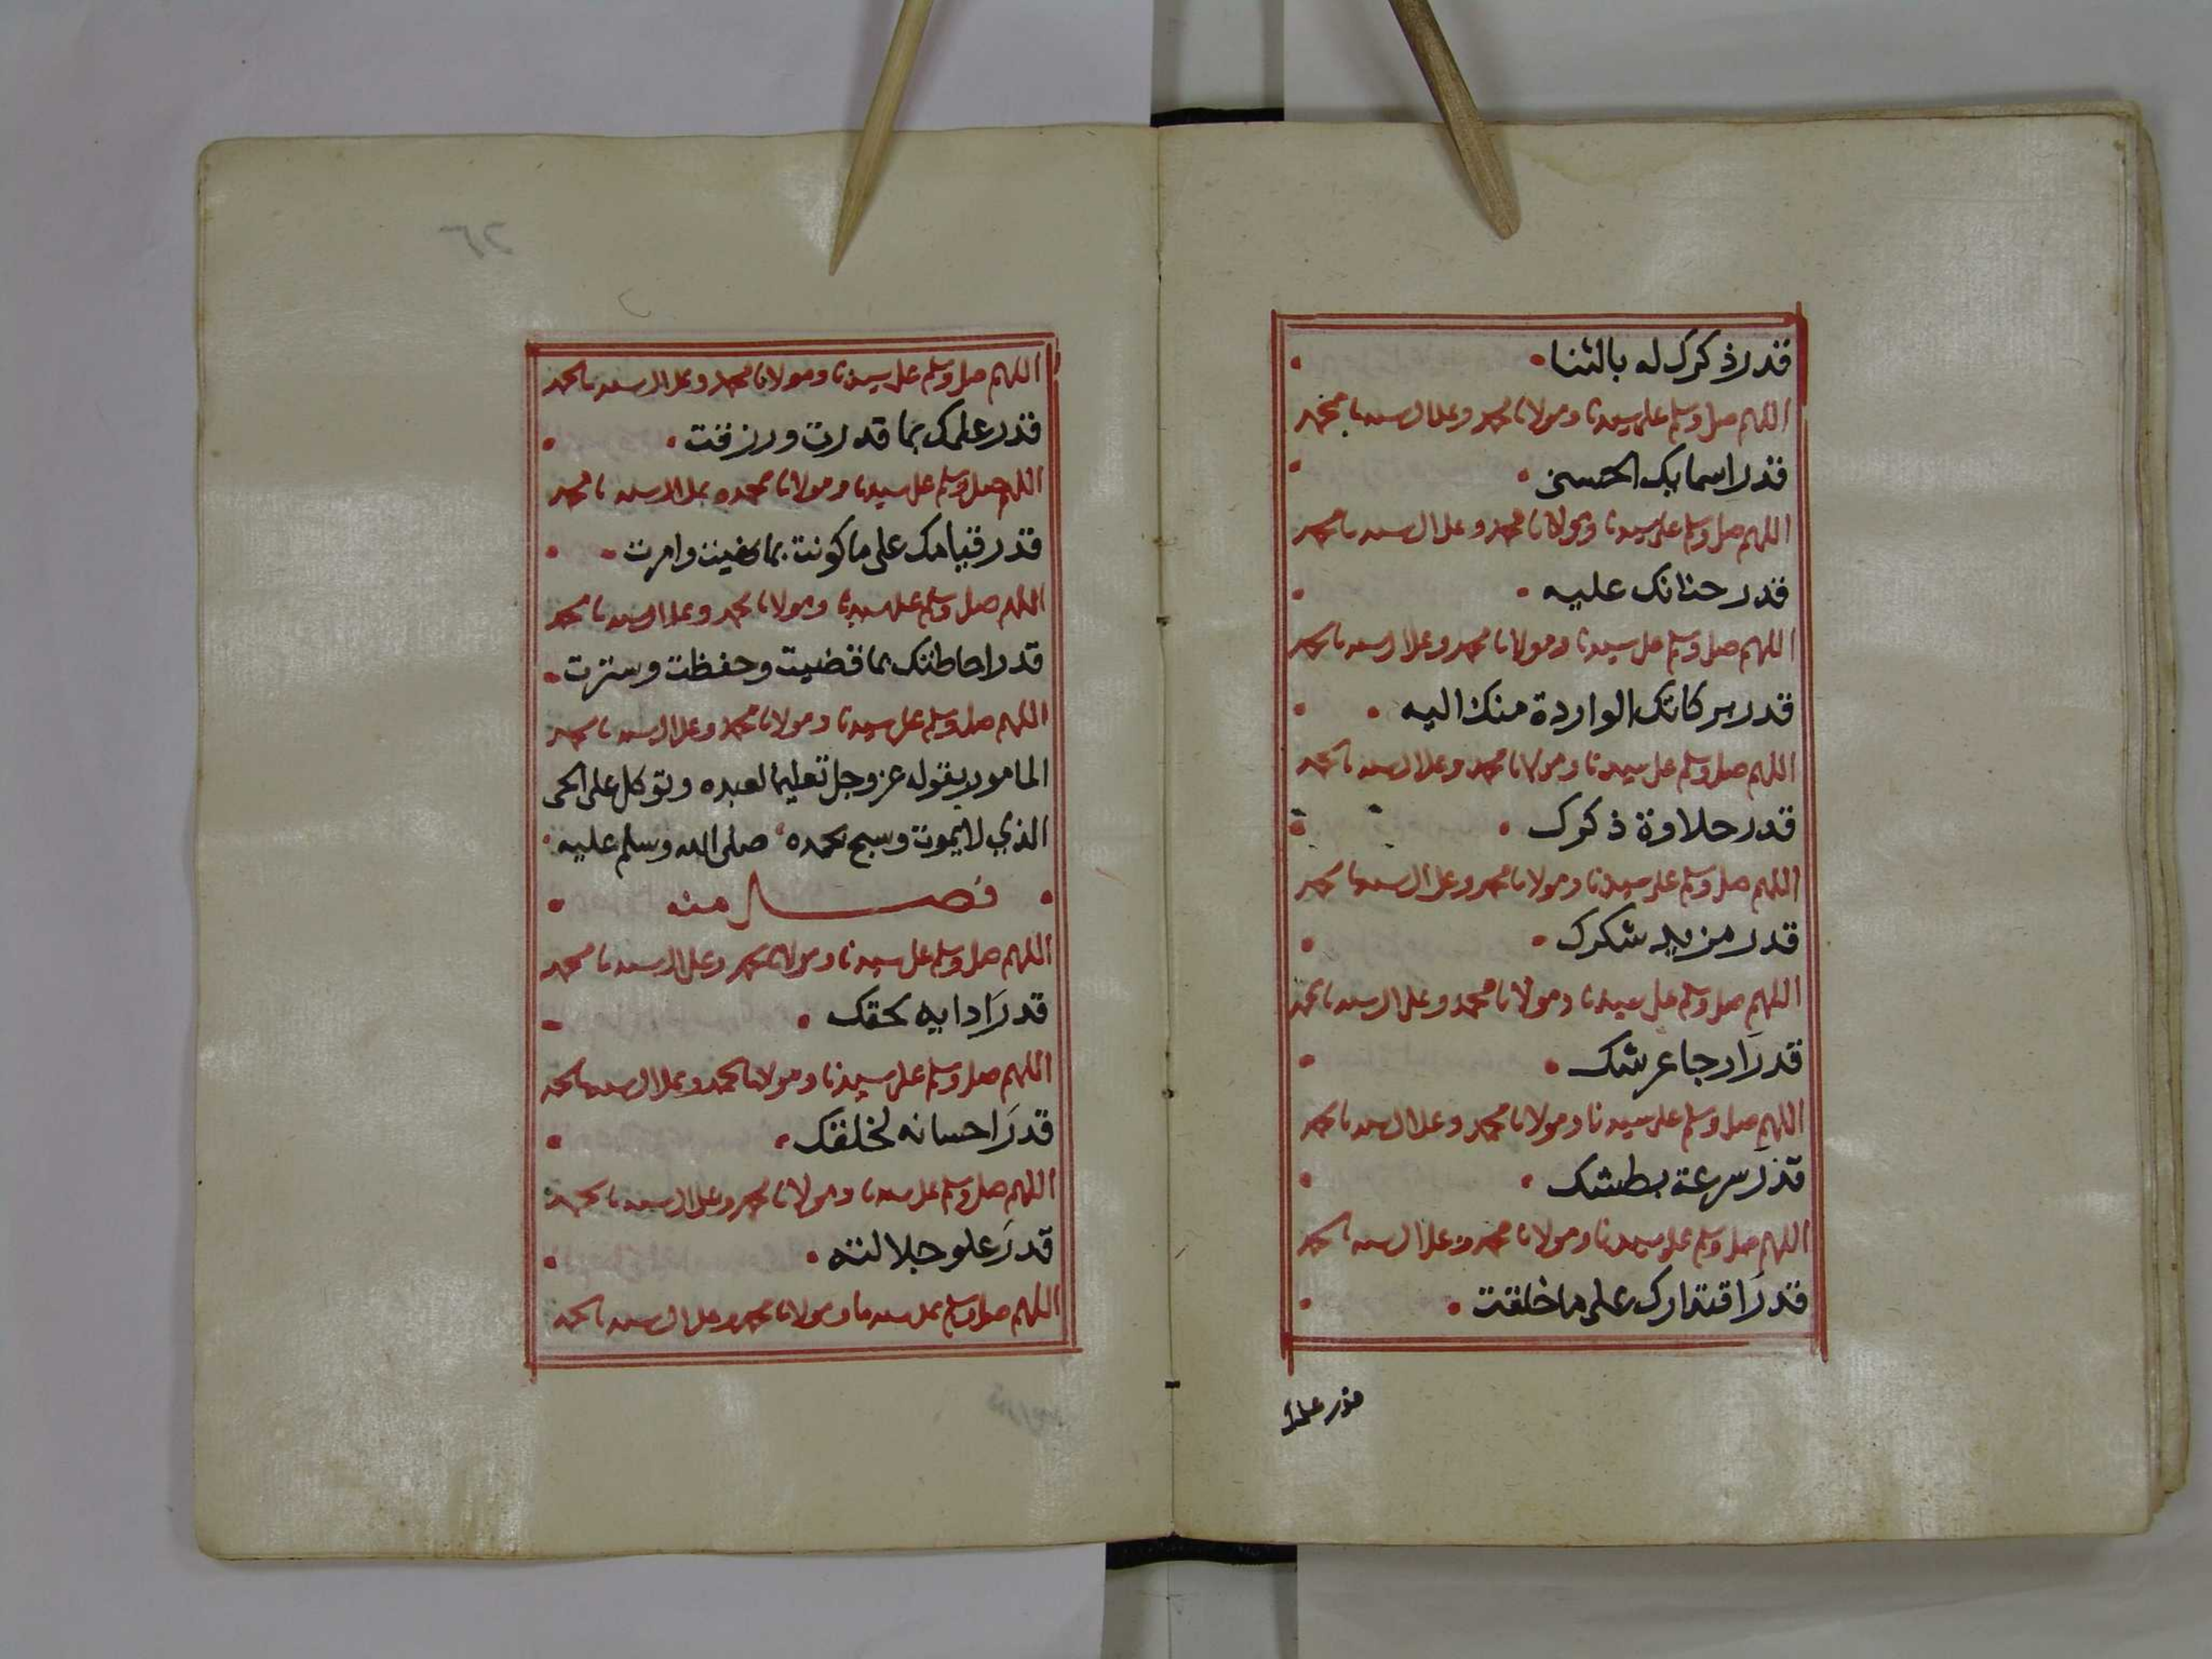 قدر ذكرك له بالثنا
اللهم صل وسلم على سيدنا ومولانا محمد وعلى ال سيدنا محمد
قدر اسمايك الحسنى
اللهم صل وسلم على سيدنا ومولانا محمد وعلى ال سيدنا محمد
قدر حنانك عليه
اللهم صل وسلم على سيدنا ومولانا محمد وعلى ال سيدنا محمد
قدر بركاتك الواردة منك اليه
اللهم صل وسلم على سيدنا ومولانا محمد وعلى ال سيدنا محمد
قدر حلاوة ذكرك
اللهم صل وسلم على سيدنا ومولانا محمد وعلى ال سيدنا محمد
قدر مزيد شكرك
اللهم صل وسلم على سيدنا ومولانا محمد وعلى ال سيدنا محمد
قدرَ ارجا عرشك
اللهم صل وسلم على سيدنا ومولانا محمد وعلى ال سيدنا محمد
قدرَ سرعة بطشك
اللهم صل وسلم على سيدنا ومولانا محمد وعلى ال سيدنا محمد
قدرَ اقتدارك على ما خلقت
قدر علمك
اللهم صل وسلم على سيدنا ومولانا محمد وعلى ال سيدنا محمد
قدر علمك بما قدرت ورزقت
اللهم صل وسلم على سيدنا ومولانا محمد وعلى ال سيدنا محمد
قدر قيامك على ما كونت بما نهيت وامرت
اللهم صل وسلم على سيدنا ومولانا محمد وعلى ال سيدنا محمد
قدر احاطتك بما قضيت وحفظت وسترت
اللهم صل وسلم على سيدنا ومولانا محمد وعلى ال سيدنا محمد
المامور بقوله عز وجل تعليما لعبده وتوكل على الحى
الذي لا يموت وسبح بحمده صلى الله وسلم عليه
فصل منه
اللهم صل وسلم على سيدنا ومولانا محمد وعلى ال سيدنا محمد
قدرَ ادايه بحقك
اللهم صل وسلم على سيدنا ومولانا محمد وعلى ال سيدنا محمد
قدرَ احسانه لخلقك
اللهم صل وسلم على سيدنا ومولانا محمد وعلى ال سيدنا محمد
قدرَ علو جلالته
اللهم صل وسلم على سيدنا ومولانا محمد وعلى ال سيدنا محمد